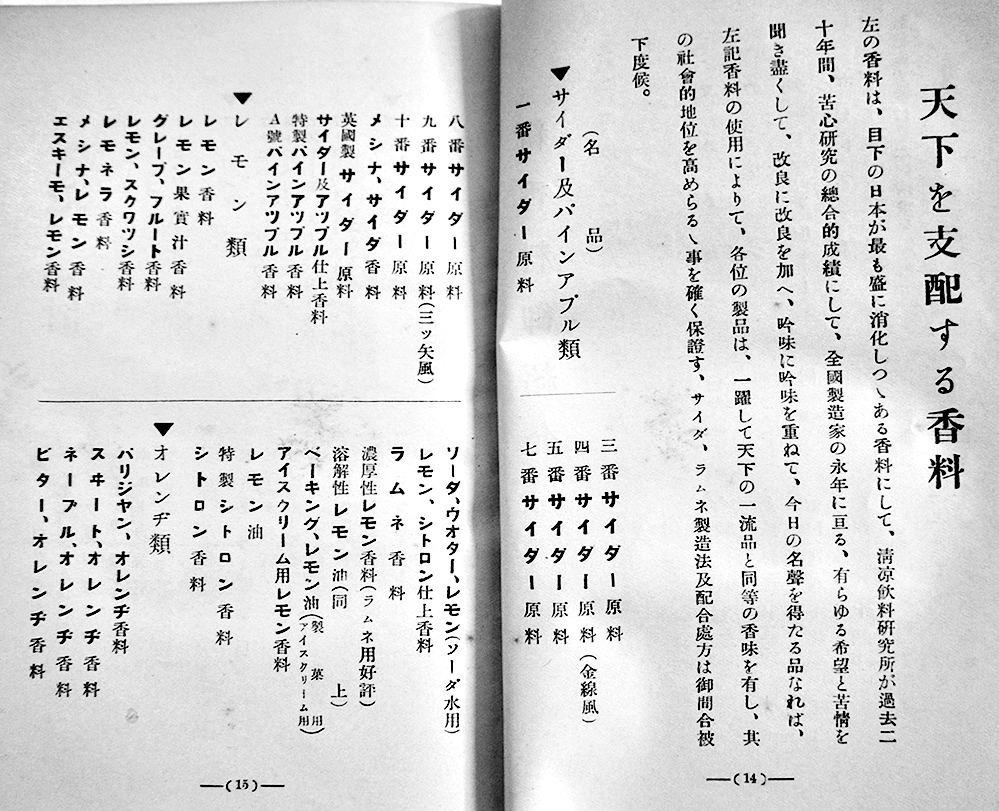 天下を支配する香料
左の香料は、目下の日本が最も盛に消化しつゝある香料にして、淸凉飲料硏究所が過去二
十年間、苦心硏究の總合的成績にして、全國製造家の永年に亘る、有らゆる希望と苦情を
聞き盡くして、改良に改良を加へ、吟味に吟味を重ねて、今日の名聲を得たる品なれば、
左記香料の使用によりて、各位の製品は、一躍して天下の一流品と同等の香味を有し、其
の社會的地位を高めらるゝ事を確く保證す、サイダ、ラムネ製造法及配合處方は御問合被
下度候。
(名品)
▼サイダー及パインアプル類
一番サイダー原料
三番サイダー原料
四番サイダー原料(金線風)
五番サイダー原料
七番サイダー原料
—(14)—
八番サイダー原料
九番サイダー原料(三ッ矢風)
十番サイダー原料
メシナ、サイダ香料
英國製サイダー原料
サイダー及アツプル仕上香料
特製パインアツプル香料
A號パインアツプル香料
▼レモン類
レモン香料
レモン果實汁香料
グレープ、フルート香料
レモン、スクワツシ香料
レモネラ香料
メシナ、レモン香料
エスキーモ、レモン香料
ソーダ、ウオター、レモン(ソーダ水用)
レモン、シトロン仕上香料
ラムネ香料
濃厚性レモン香料(ラムネ用好評)
溶解性レモン油(同上)
ベーキング、レモン油(製菓用アイスクリーム用)
アイスクリーム用レモン香料
レモン油
特製シトロン香料
シトロン香料
▼オレンヂ類
パリジヤン、オレンヂ香料
スヰート、オレンヂ香料
ネーブル、オレンヂ香料
ビター、オレンヂ香料
—(15)—